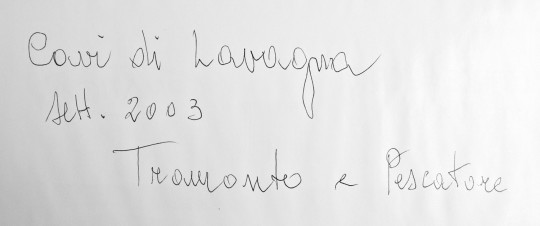 Cavi di Lavagna
sett. 2003
Tramonto e Pescatore